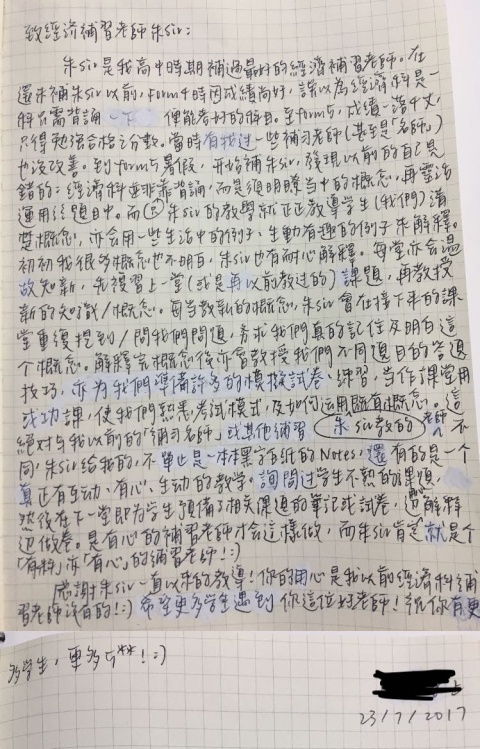 致經濟補習老師朱Sir:
朱Sir是我高中時期補過最好的經濟補習老師。在
還未補朱Sir以前,Form 4時因成績尚好,誤以為經濟科是一
科只需背誦一下便能考好的科目。至form5,成績一落千丈,
只得勉強合格分數。當時有找過一些補習老師(甚至是「名師」)
也沒改善。到form5暑假,開始補朱Sir,發現以前的自己是
錯的:經濟科並非靠背誦,而是須明瞭當中的概念,再靈活
運用於題目中。而朱Sir的教學就正正教導學生(我們)清
楚概念,亦會用一些生活中的例子、生動有趣的例子來解釋。
初初我很多概念也不明白,朱Sir也有耐心解釋。每堂亦會溫
故知新,先複習上一堂(或是再以前教過的)課題,再教授
新的知識/概念。每當教新的概念,朱Sir會在接下來的課
堂重複提到/問我們問題,務求我們真的記住及明白這
個概念。解釋完概念後亦會教授我們不同題目的答題
技巧,亦為我們準備許多的模擬試卷、練習,當作課堂用
或功課,使我們熟悉考試模式,及如何運用既有概念。這
絕對與我以前的「補習名師」或其他補習老師不
朱Sir教的
同!朱Sir給我的,不單止是一本本黑字白紙的Notes,還有的是一個
真正有互動、有心、生動的教學。詢問過學生不熟的課題,
然後在下一堂即為學生預備了相關課題的筆記或試卷,邊解釋
邊做卷。是有心的補習老師才會這樣做,而朱Sir肯定就是個
「有料」亦「有心」的補習老師!:)
感謝朱Sir一直以來的教導!你的用心是我以前經濟科補
習老師沒有的!:) 希望更多學生遇到你這位好老師!祝你有更
多學生,更多5**!:)
23/7/2017